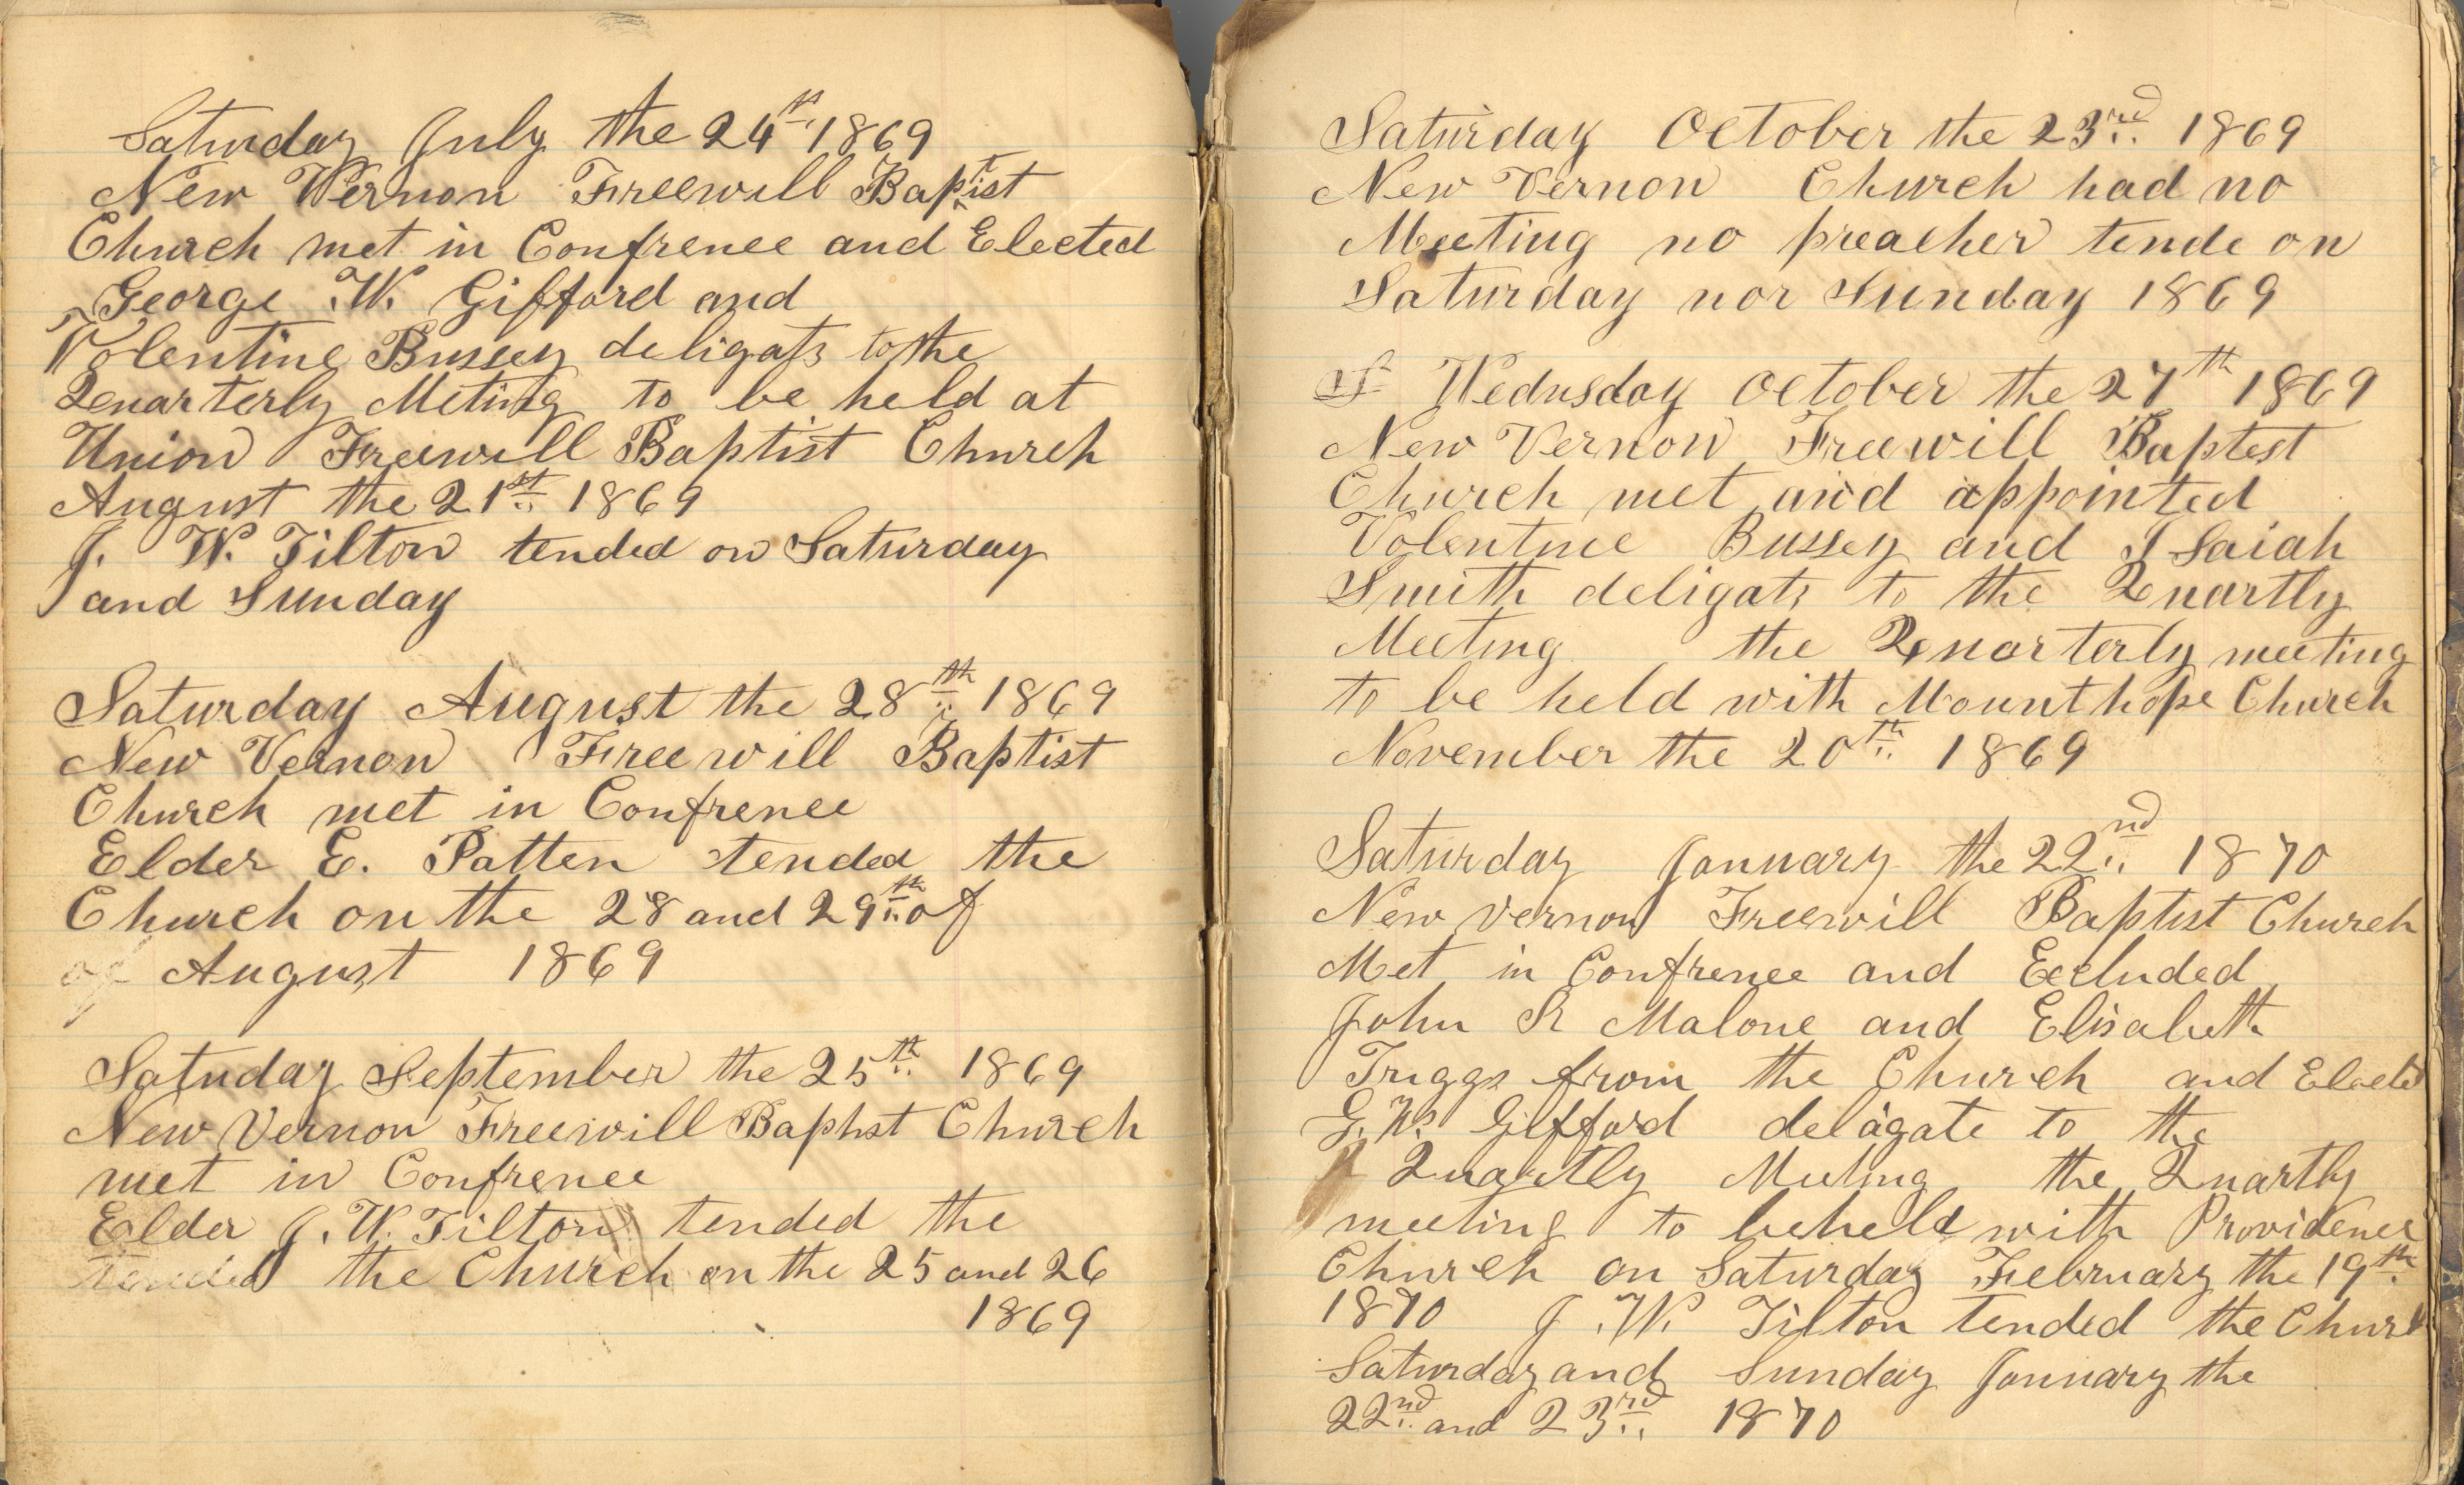 Saturday July the 24th 1869
New Vernon Freewill Baptist
Church met in Confrence and Elected
George W. Gifford and
Volentine Bussey deligats to the
Quarterly Meting to be held at
Union Freewill Baptist Church
August the 21st 1869
J. W. Tilton tended on Saturday
and Sunday
Saturday August the 28th 1869
New Vernon Freewill Baptist
Church met in Confrence
Elder E. Patten tended the
Church on the 28 and 29th of
of August 1869
Satuday September the 25th 1869
New Vernon Freewill Baptist Church
met in Confrence
Elder J. W. Tilton tended the
tended the Church on the 25 and 26
1869
Saturday October the 23rd 1869
New Vernon Church had no
Meeting no preacher tende on
Saturday nor Sunday 1869
Wednsday October the 27th 1869
New Vernon Freewill Baptest
Church met and appointed
Volentine Bussey and Isaiah
Smith deligats to the Quartly
Meeting the Quarterly meeting
to be held with Mount hope Church
November the 20th 1869
Saturday January the 22nd 1870
New Vernon Freewill Baptist Church
Met in Confrence and Excluded
John R Malone and Elisabeth
Triggs from the Church and Elected
G. W. Gifford delagate to the
Quartly Meeting the Quartly
meeting to beheld with Providence
Church on Saturday February the 19th
1870 J. W. Tilton tended the Church
Saturday and Sunday January the
22nd and 23rd 1870